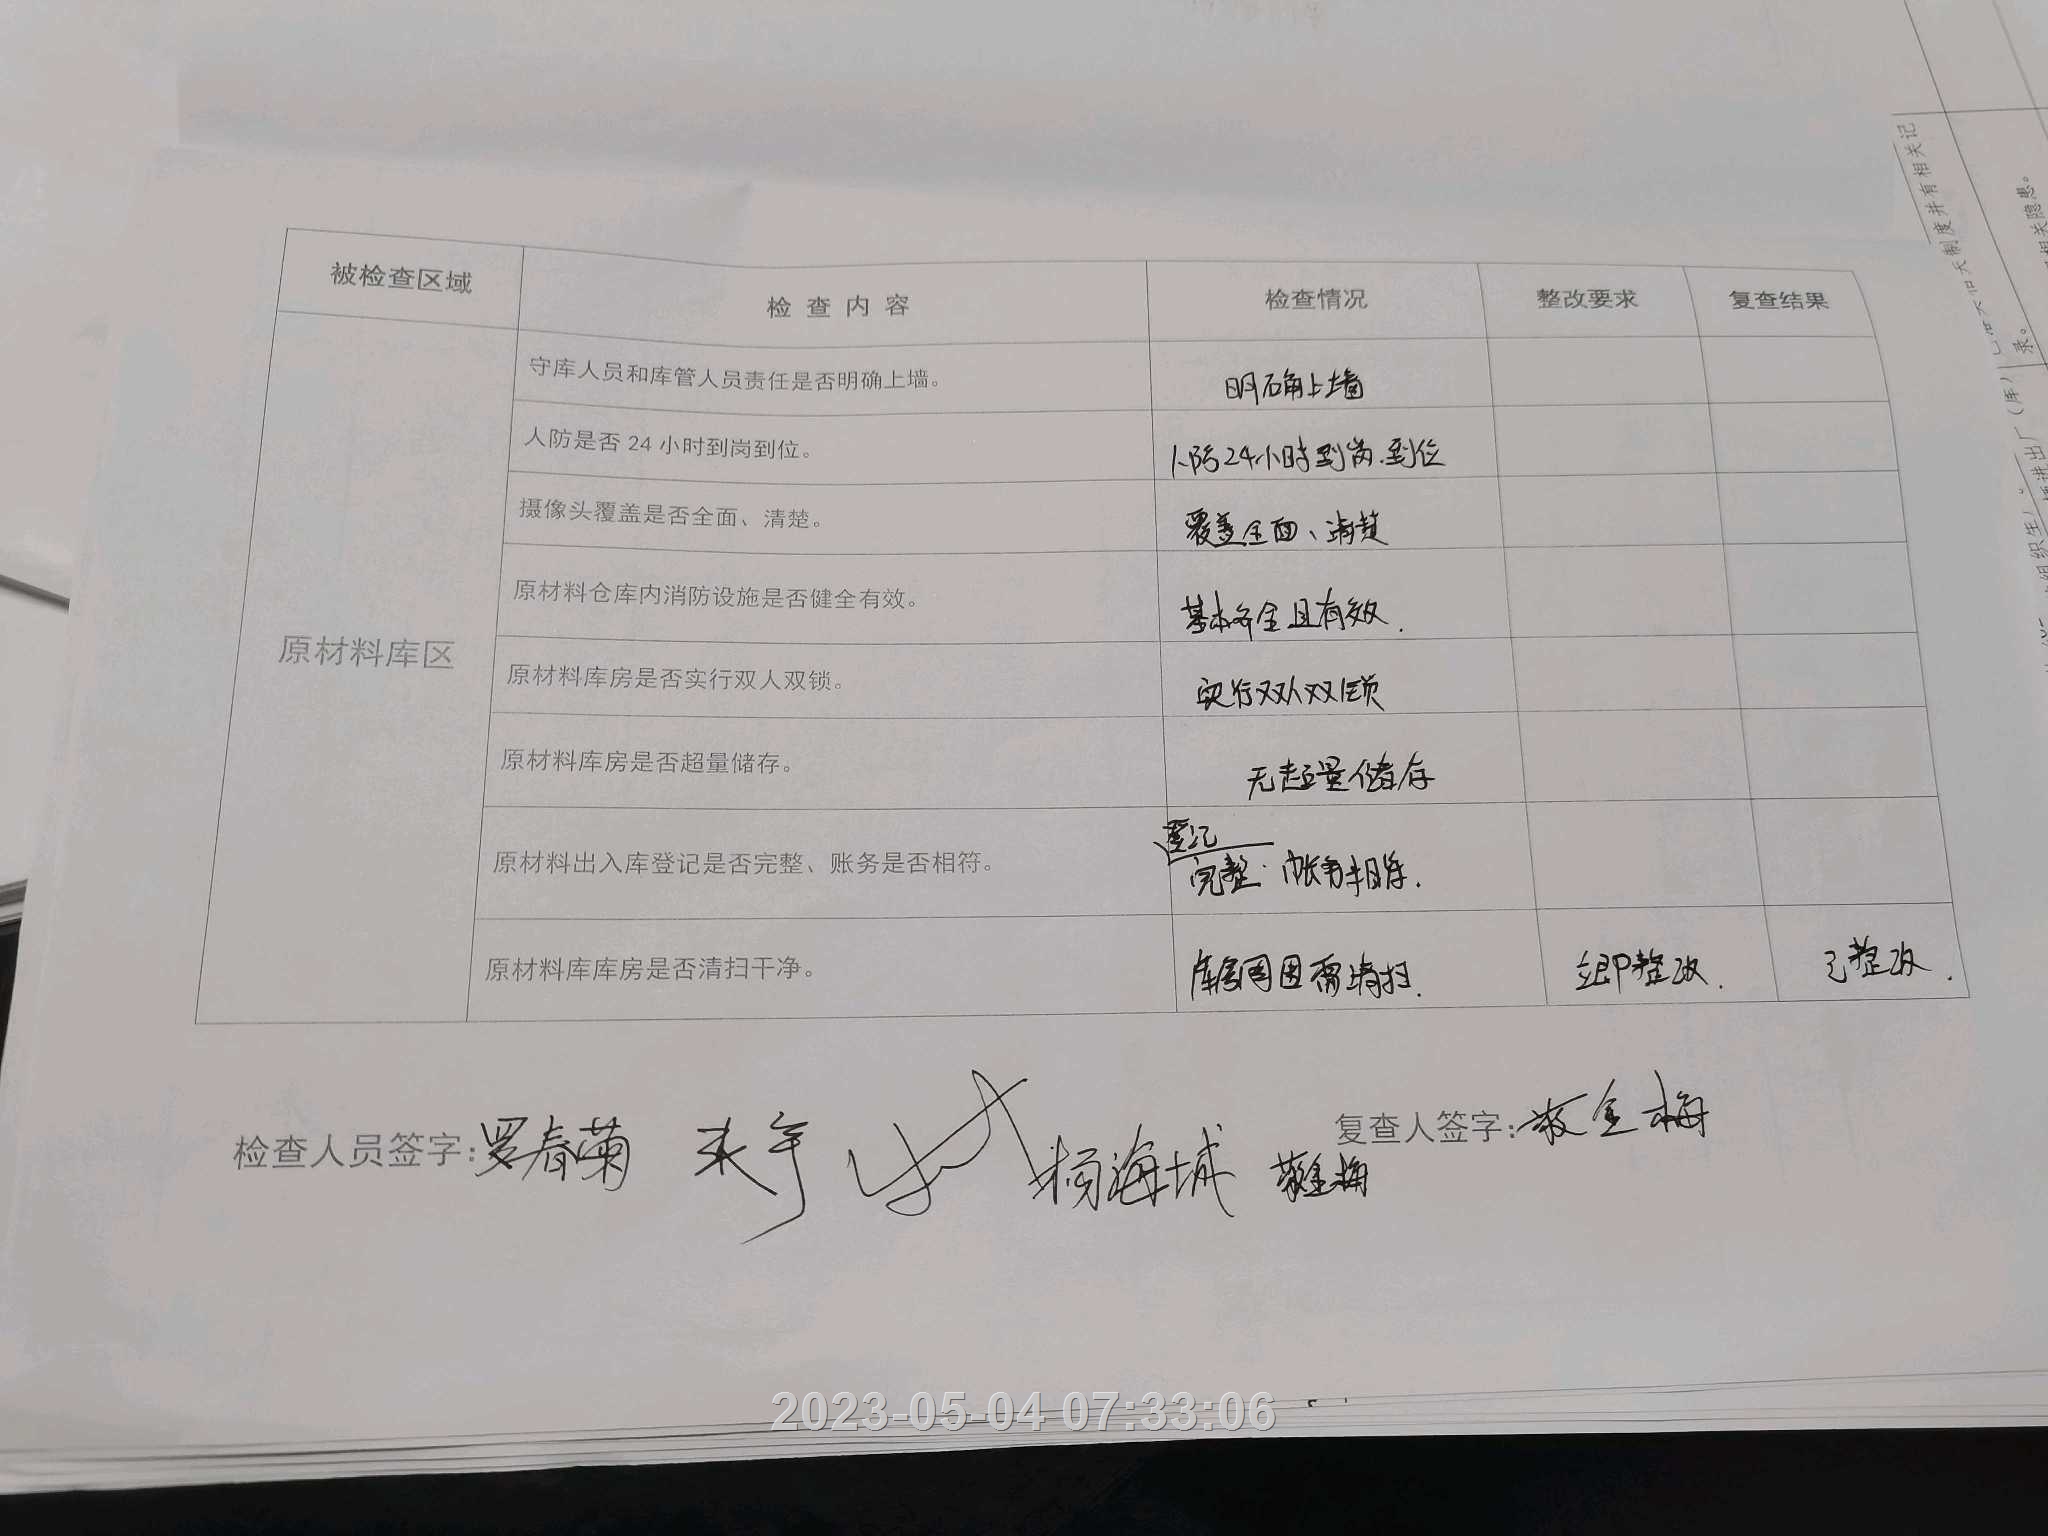 被检查区域 检查内容 检查情况 整改要求 复查结果
原材料库区
守库人员和库管人员责任是否明确上墙。 明确上墙
人防是否24小时到岗到位。 人防24小时到岗.到位
摄像头覆盖是否全面、清楚。 覆盖全面、清楚
原材料仓库内消防设施是否健全有效。 基本齐全且有效.
原材料库房是否实行双人双锁。 实行双人双锁
原材料库房是否超量储存。 无超量储存
原材料出入库登记是否完整、账务是否相符。 登记完整.帐务相符.
原材料库库房是否清扫干净。 库房周围需清扫. 立即整改. 已整改.
检查人员签字:罗春菊 杨海城
复查人签字: 金梅
2023-05-04 07:33:06
制度并有相关记
录。
相关隐患。